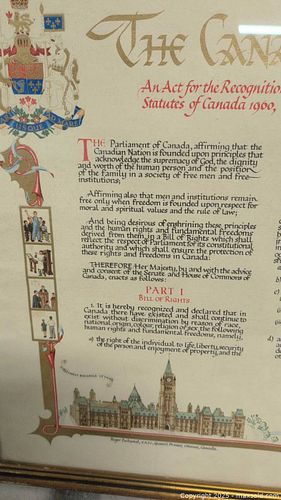 THE CANA
An Act for the Recognition
Statutes of Canada 1960,
THE Parliament of Canada, affirming that the
Canadian Nation is founded upon principles that
acknowledge the supremacy of God, the dignity
and worth of the human person and the position
of the family in a society of free men and free
institutions;
Affirming also that men and institutions remain
free only when freedom is founded upon respect for
moral and spiritual values and the rule of law;
And being desirous of enshrining these principles
and the human rights and fundamental freedoms
derived from them, in a Bill of Rights which shall
reflect the respect of Parliament for its constitutional
authority and which shall ensure the protection of
these rights and freedoms in Canada:
THEREFORE Her Majesty, by and with the advice
and consent of the Senate and House of Commons
of Canada, enacts as follows:
PART I
BILL OF RIGHTS
1. It is hereby recognized and declared that in
Canada there have existed and shall continue to
exist without discrimination by reason of race,
national origin, colour, religion or sex, the following
human rights and fundamental freedoms, namely,
a) the right of the individual to life, liberty, security
of the person and enjoyment of property, and the
Queen's Printer, Ottawa, Canada.